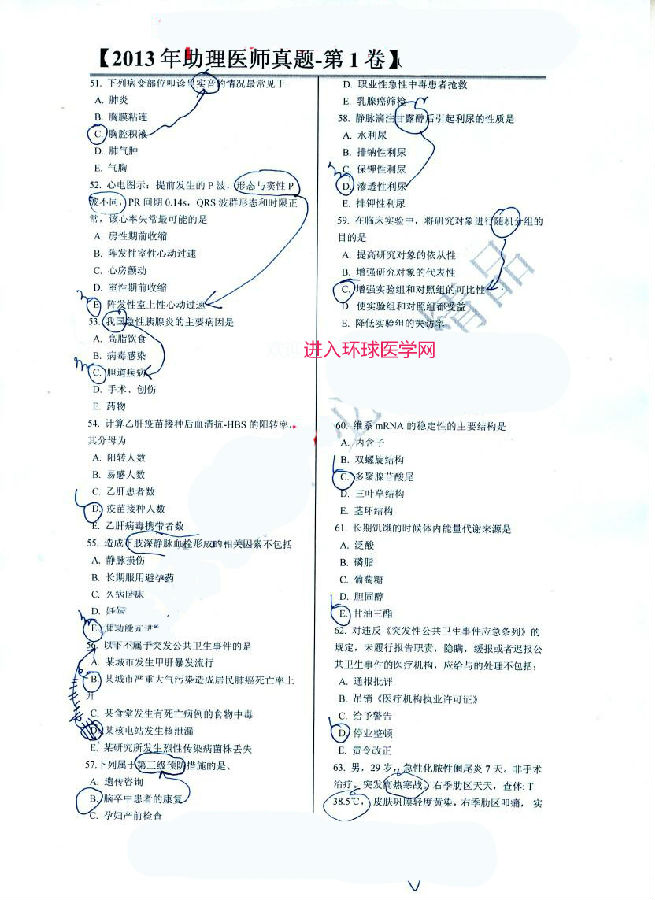 【2013年助理医师真题-第1卷】
51. 下列病变部位叩诊呈实音的情况最常见于
A. 肺炎
B. 胸膜粘连
C. 胸腔积液
D. 肺气肿
E. 气胸
52. 心电图示：提前发生的P波，形态与窦性P
波不同，PR间期0.14s，QRS波群形态和时限正
常，该心率失常最可能的是
A. 房性期前收缩
B. 阵发性室性心动过速
C. 心房颤动
D. 室性期前收缩
E. 阵发性室上性心动过速
53. 我国急性胰腺炎的主要病因是
A. 高脂饮食
B. 病毒感染
C. 胆道疾病
D. 手术、创伤
E. 药物
54. 计算乙肝疫苗接种后血清抗-HBS的阳转率，
其分母为
A. 阳转人数
B. 易感人数
C. 乙肝患者数
D. 疫苗接种人数
E. 乙肝病毒携带者数
55. 造成下肢深静脉血栓形成的相关因素不包括
A. 静脉损伤
B. 长期服用避孕药
C. 久病卧床
D. 妊娠
E.
56. 以下不属于突发公共卫生事件的是
A. 某城市发生甲肝暴发流行
B. 某城市严重大气污染造成居民肺癌死亡率上
升
C. 某食堂发生有死亡病例的食物中毒
D. 某核电站发生核泄漏
E. 某研究所发生烈性传染病菌株丢失
57. 下列属于第三级预防措施的是、
A. 遗传咨询
B. 脑卒中患者的康复
C. 孕妇产前检查
D. 职业性急性中毒患者抢救
E. 乳腺癌筛检
58. 静脉滴注甘露醇后引起利尿的性质是
A. 水利尿
B. 排钠性利尿
C. 保钾性利尿
D. 渗透性利尿
E. 排钾性利尿
59. 在临床实验中，将研究对象进行随机分组的
目的是
A. 提高研究对象的依从性
B. 增强研究对象的代表性
C. 增强实验组和对照组的可比性
D. 使实验组和对照组都受益
E. 降低实验组的失访率
精品
进入环球医学网
60. 维系mRNA的稳定性的主要结构是
A. 内含子
B. 双螺旋结构
C. 多聚腺苷酸尾
D. 三叶草结构
E. 茎环结构
61. 长期饥饿的时候体内能量代谢来源是
A. 泛酸
B. 磷脂
C. 葡萄糖
D. 胆固醇
E. 甘油三酯
62. 对违反《突发性公共卫生事件应急条列》的
规定，未履行报告职责，隐瞒，缓报或者迟报公
共卫生事件的医疗机构，应给与的处理不包括：
A. 通报批评
B. 吊销《医疗机构执业许可证》
C. 给予警告
D. 停业整顿
E. 责令改正
63. 男，29岁，急性化脓性阑尾炎7天，非手术
治疗，突发寒热寒战，右季肋区天天，查体：T
38.5℃，皮肤巩膜轻度黄染，右季肋区叩痛，实